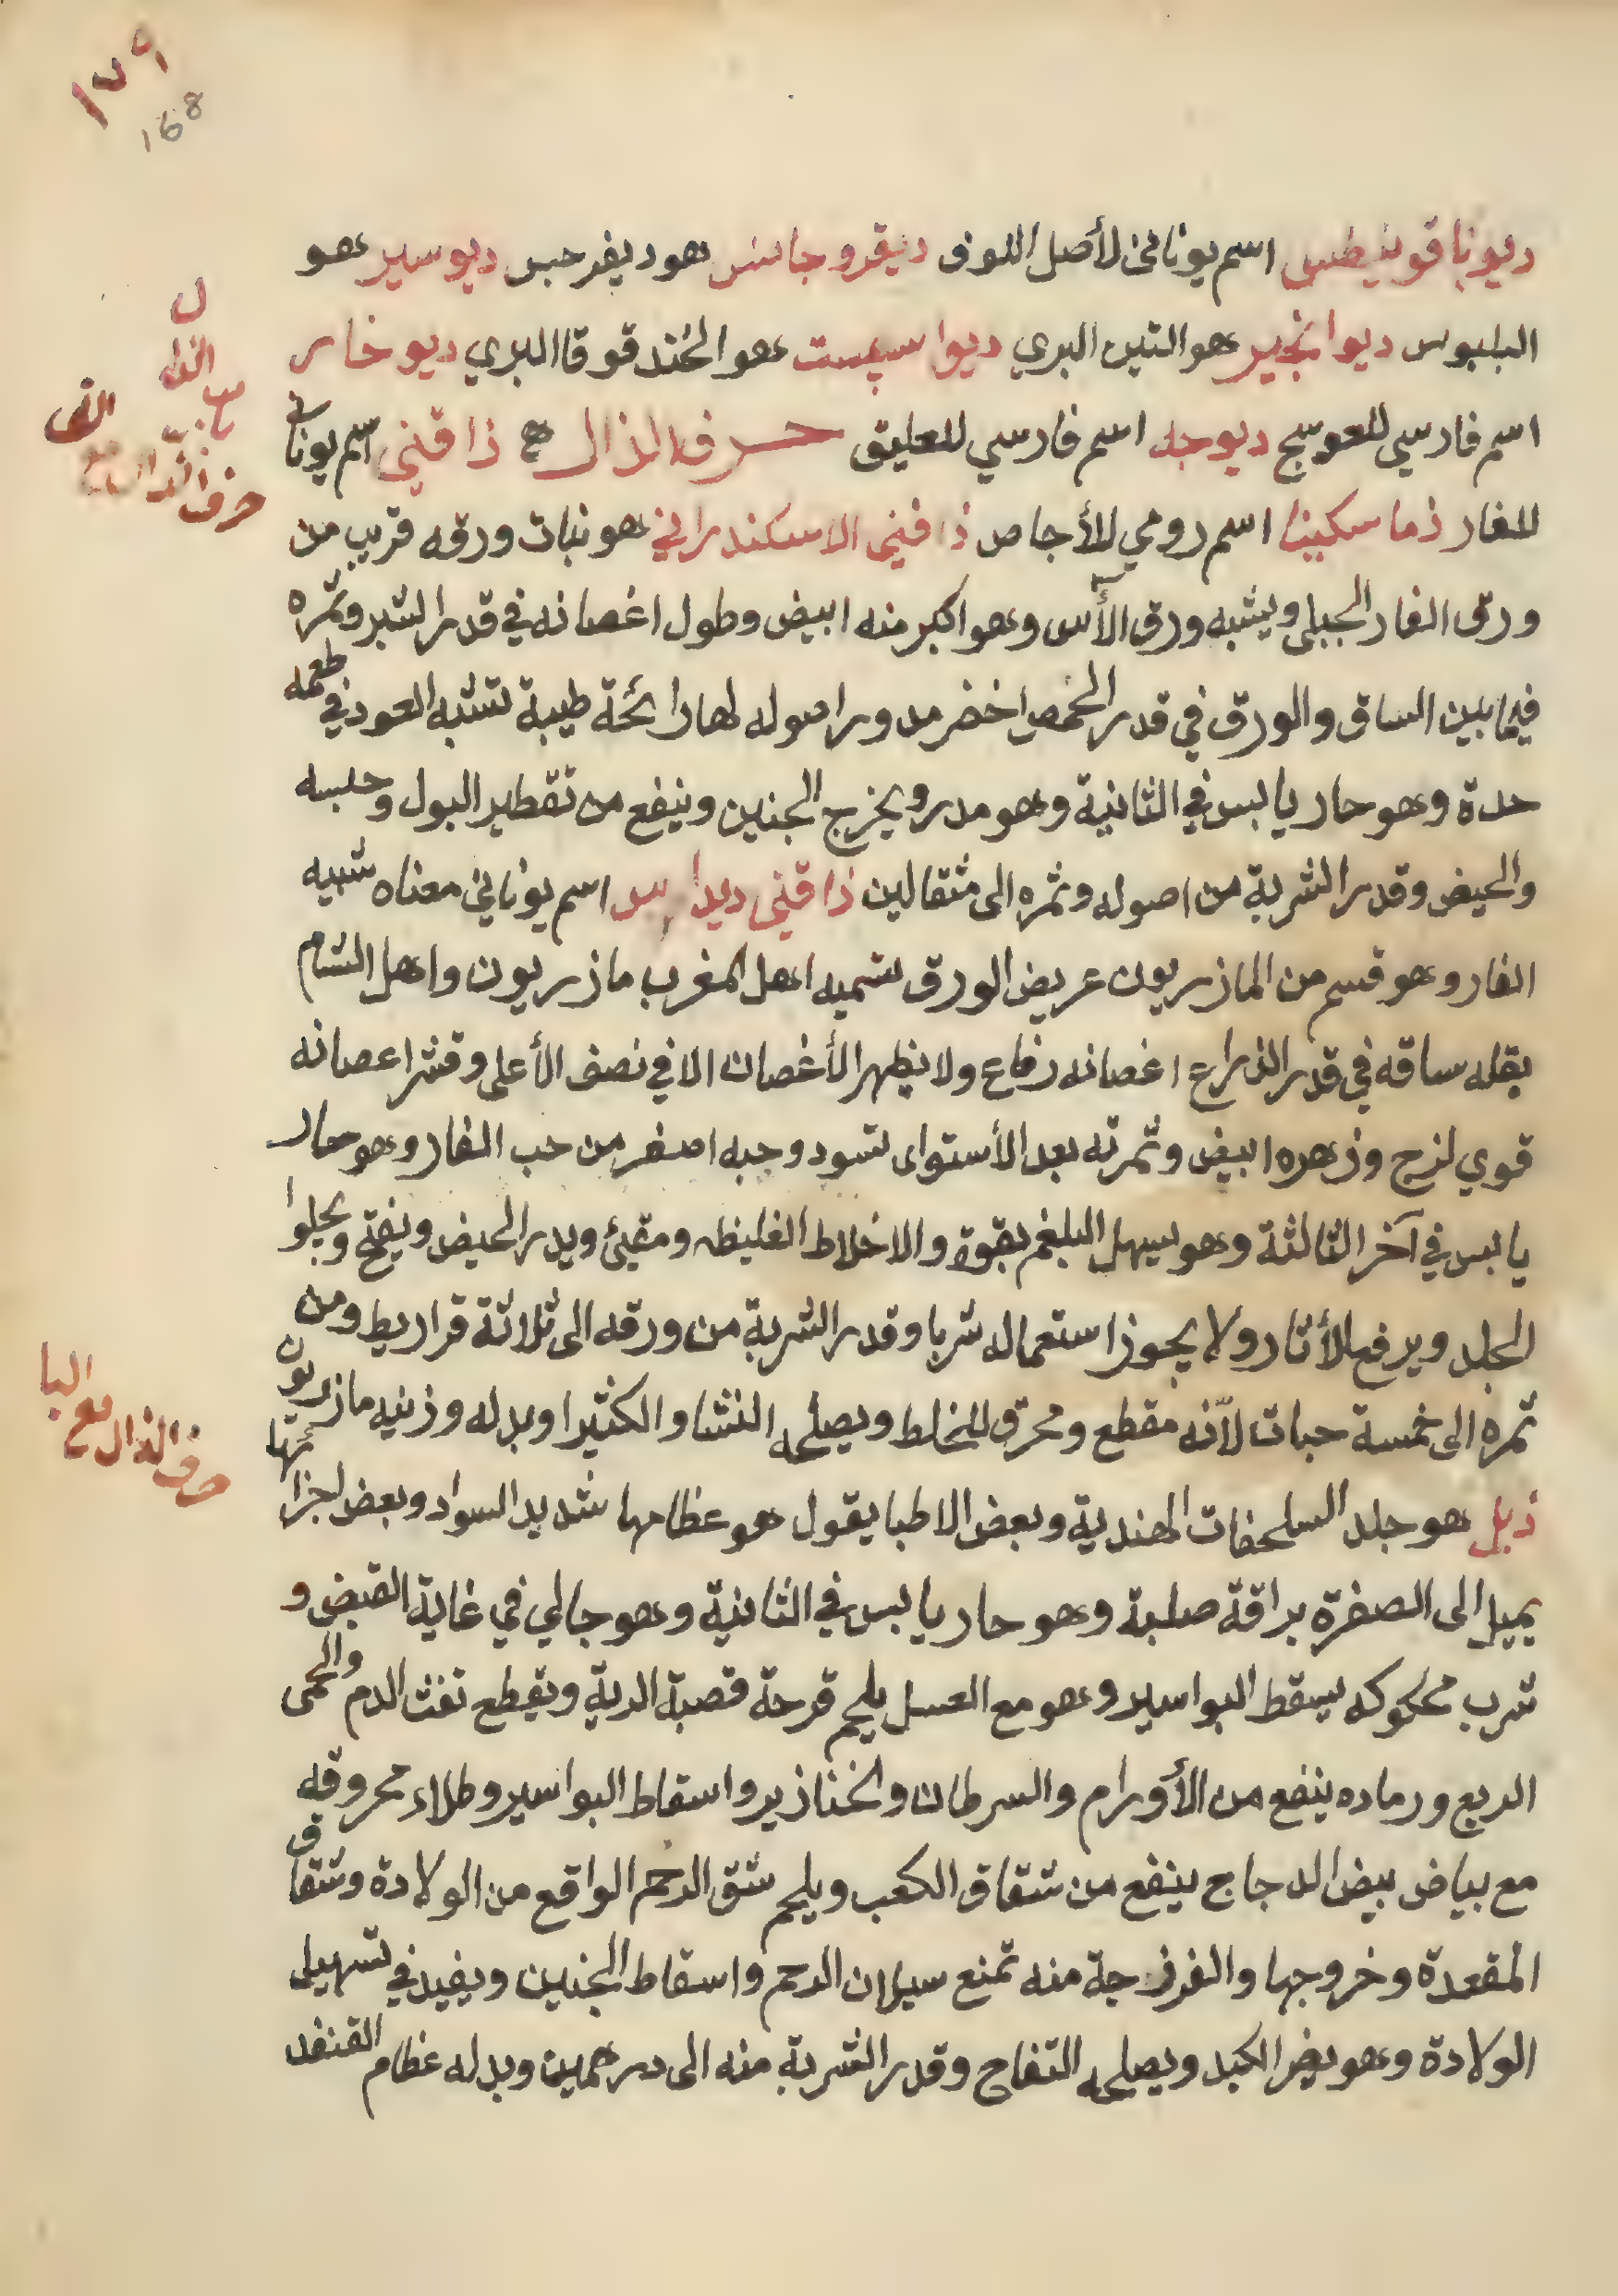 ١٧٩
168
ديونا قوبنيطس اسم يوناني لأصل اللوف ديقروجاسس هو ديفرحبس ديوسير هو
البلبوس ديوانجير هو التين البري ديواسپست هو الحندقوقا البري ديوخار
اسم فارسي للعوسج ديوجله اسم فارسي للعليق حرف الذال ذاقني اسم يوناني
للغار ذماسكينا اسم رومي للأجاص ذافني الاسكندراني هو نبات ورقه قريب من
ورق الغار الجبلي ويشبه ورق الآس وهو اكبر منه ابيض وطول اغصانه في قدر الشبر وثمره
فيما بين الساق والورق في قدر الحمص اخضر مدور اصوله لها رائحة طيبة تشبه العود في طعمه
حدة وهو حار يابس في الثانية وهو مدر ويخرج الجنين وينفع من تقطير البول وحبسه
والحيض وقدر الشربة من اصوله وثمره الى مثقالين ذاقني اسم يوناني معناه شبيه
الغار وهو قسم من المازريون عريض الورق يسميه اهل المغرب مازريون واهل الشام
بقله ساقه في قدر الذراع اغصانه رفاع ولا يظهر الأغصان الا في نصف الأعلى وقشر اغصانه
قوي لزج وزهره ابيض وثمرته بعد الأستواى تسود وحبه اصغر من حب الغار وهو حار
يابس في آخر الثالثة وهو يسهل البلغم بقوة والاخلاط الغليظه ومقيئ ويدر الحيض ويفتح ويجلوا
الجلد ويرفع الأثار ولا يجوز استعماله شربا وقدر الشربة من ورقه الى ثلاثة قراريط ومن
ثمره الى خمسة حبات لأنه مقطع ومحرق للخلط ويصلحه النشا والكثيرا وبدله وزنيه مازريون
ذبل هو جلد السلحفات الهندية وبعض الاطبا يقول هو عظامها شديد السواد وبعض اجزائها
يميل الى الصفرة براقة صلبة وهو حار يابس في الثانية وهو جالي في غاية القبض و
شرب محكوكه يسقط البواسير وهو مع العسل يلحم قرحة قصبة الرية ويقطع نفث الدم والحمى
الربع ورماده ينفع من الأورام والسرطان والخنازير واسقاط البواسير وطلاء محروقه
مع بياض بيض الدجاج ينفع من شقاق الكعب ويلحم شق الرحم الواقع من الولادة وشقاق
المقعدة وخروجها والفرزجة منه تمنع سيلان الرحم واسقاط الجنين ويفيد في تسهيل
الولادة وهو يضر الكبد ويصلحه التفاح وقدر الشربة منه الى درهمين وبدله عظام القنفد
حرف الذال مع البا